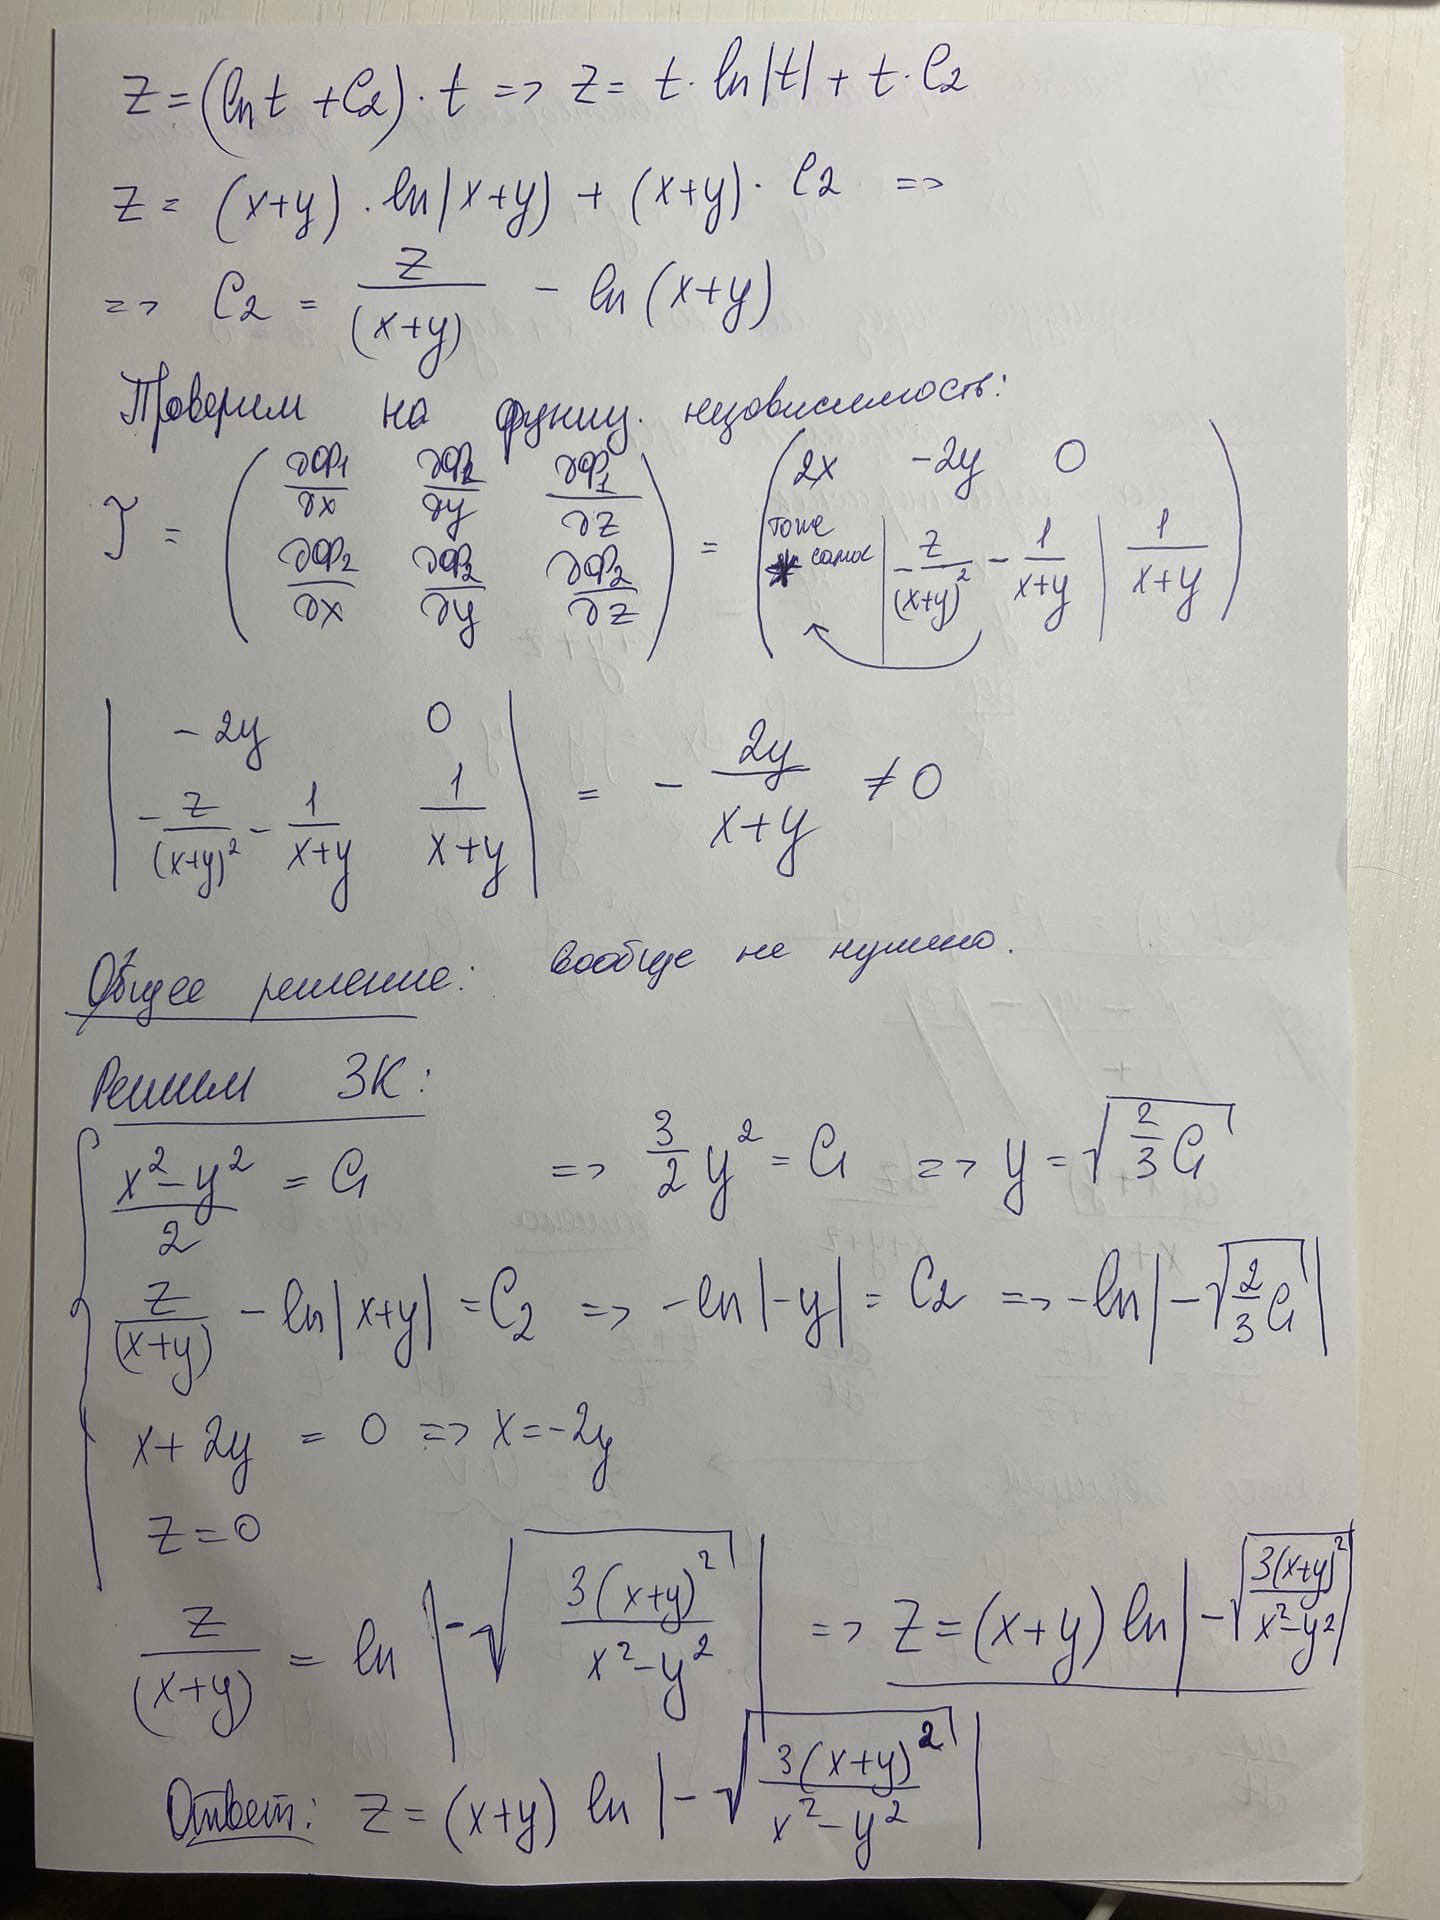 Z = (ln t + C2) · t => Z = t · ln|t| + t · C2
Z = (x+y) · ln|x+y) + (x+y) · C2 =>
=> C2 = Z/(x+y) - ln (x+y)
Проверим на функц. независимость:
J = (∂φ1/∂x ∂φ1/∂y ∂φ1/∂z; ∂φ2/∂x ∂φ2/∂y ∂φ2/∂z) = (2x -2y 0; тоже самое | -Z/(x+y)² - 1/(x+y) | 1/(x+y))
|-2y 0; -Z/(x+y)² - 1/(x+y) 1/(x+y)| = - 2y/(x+y) ≠ 0
Общее решение: вообще не нужно.
Решим ЗК:
(x²-y²)/2 = C1 => 3/2 y² = C1 => y = √(2/3 C1)
Z/(x+y) - ln|x+y| = C2 => -ln|-y| = C2 => -ln|-√(2/3 C1)|
x + 2y = 0 => x = -2y
Z = 0
Z/(x+y) = ln|-√(3(x+y)²/(x²-y²))| => Z = (x+y) ln|-√(3(x+y)²/(x²-y²))|
Ответ: Z = (x+y) ln|-√(3(x+y)²/(x²-y²))|